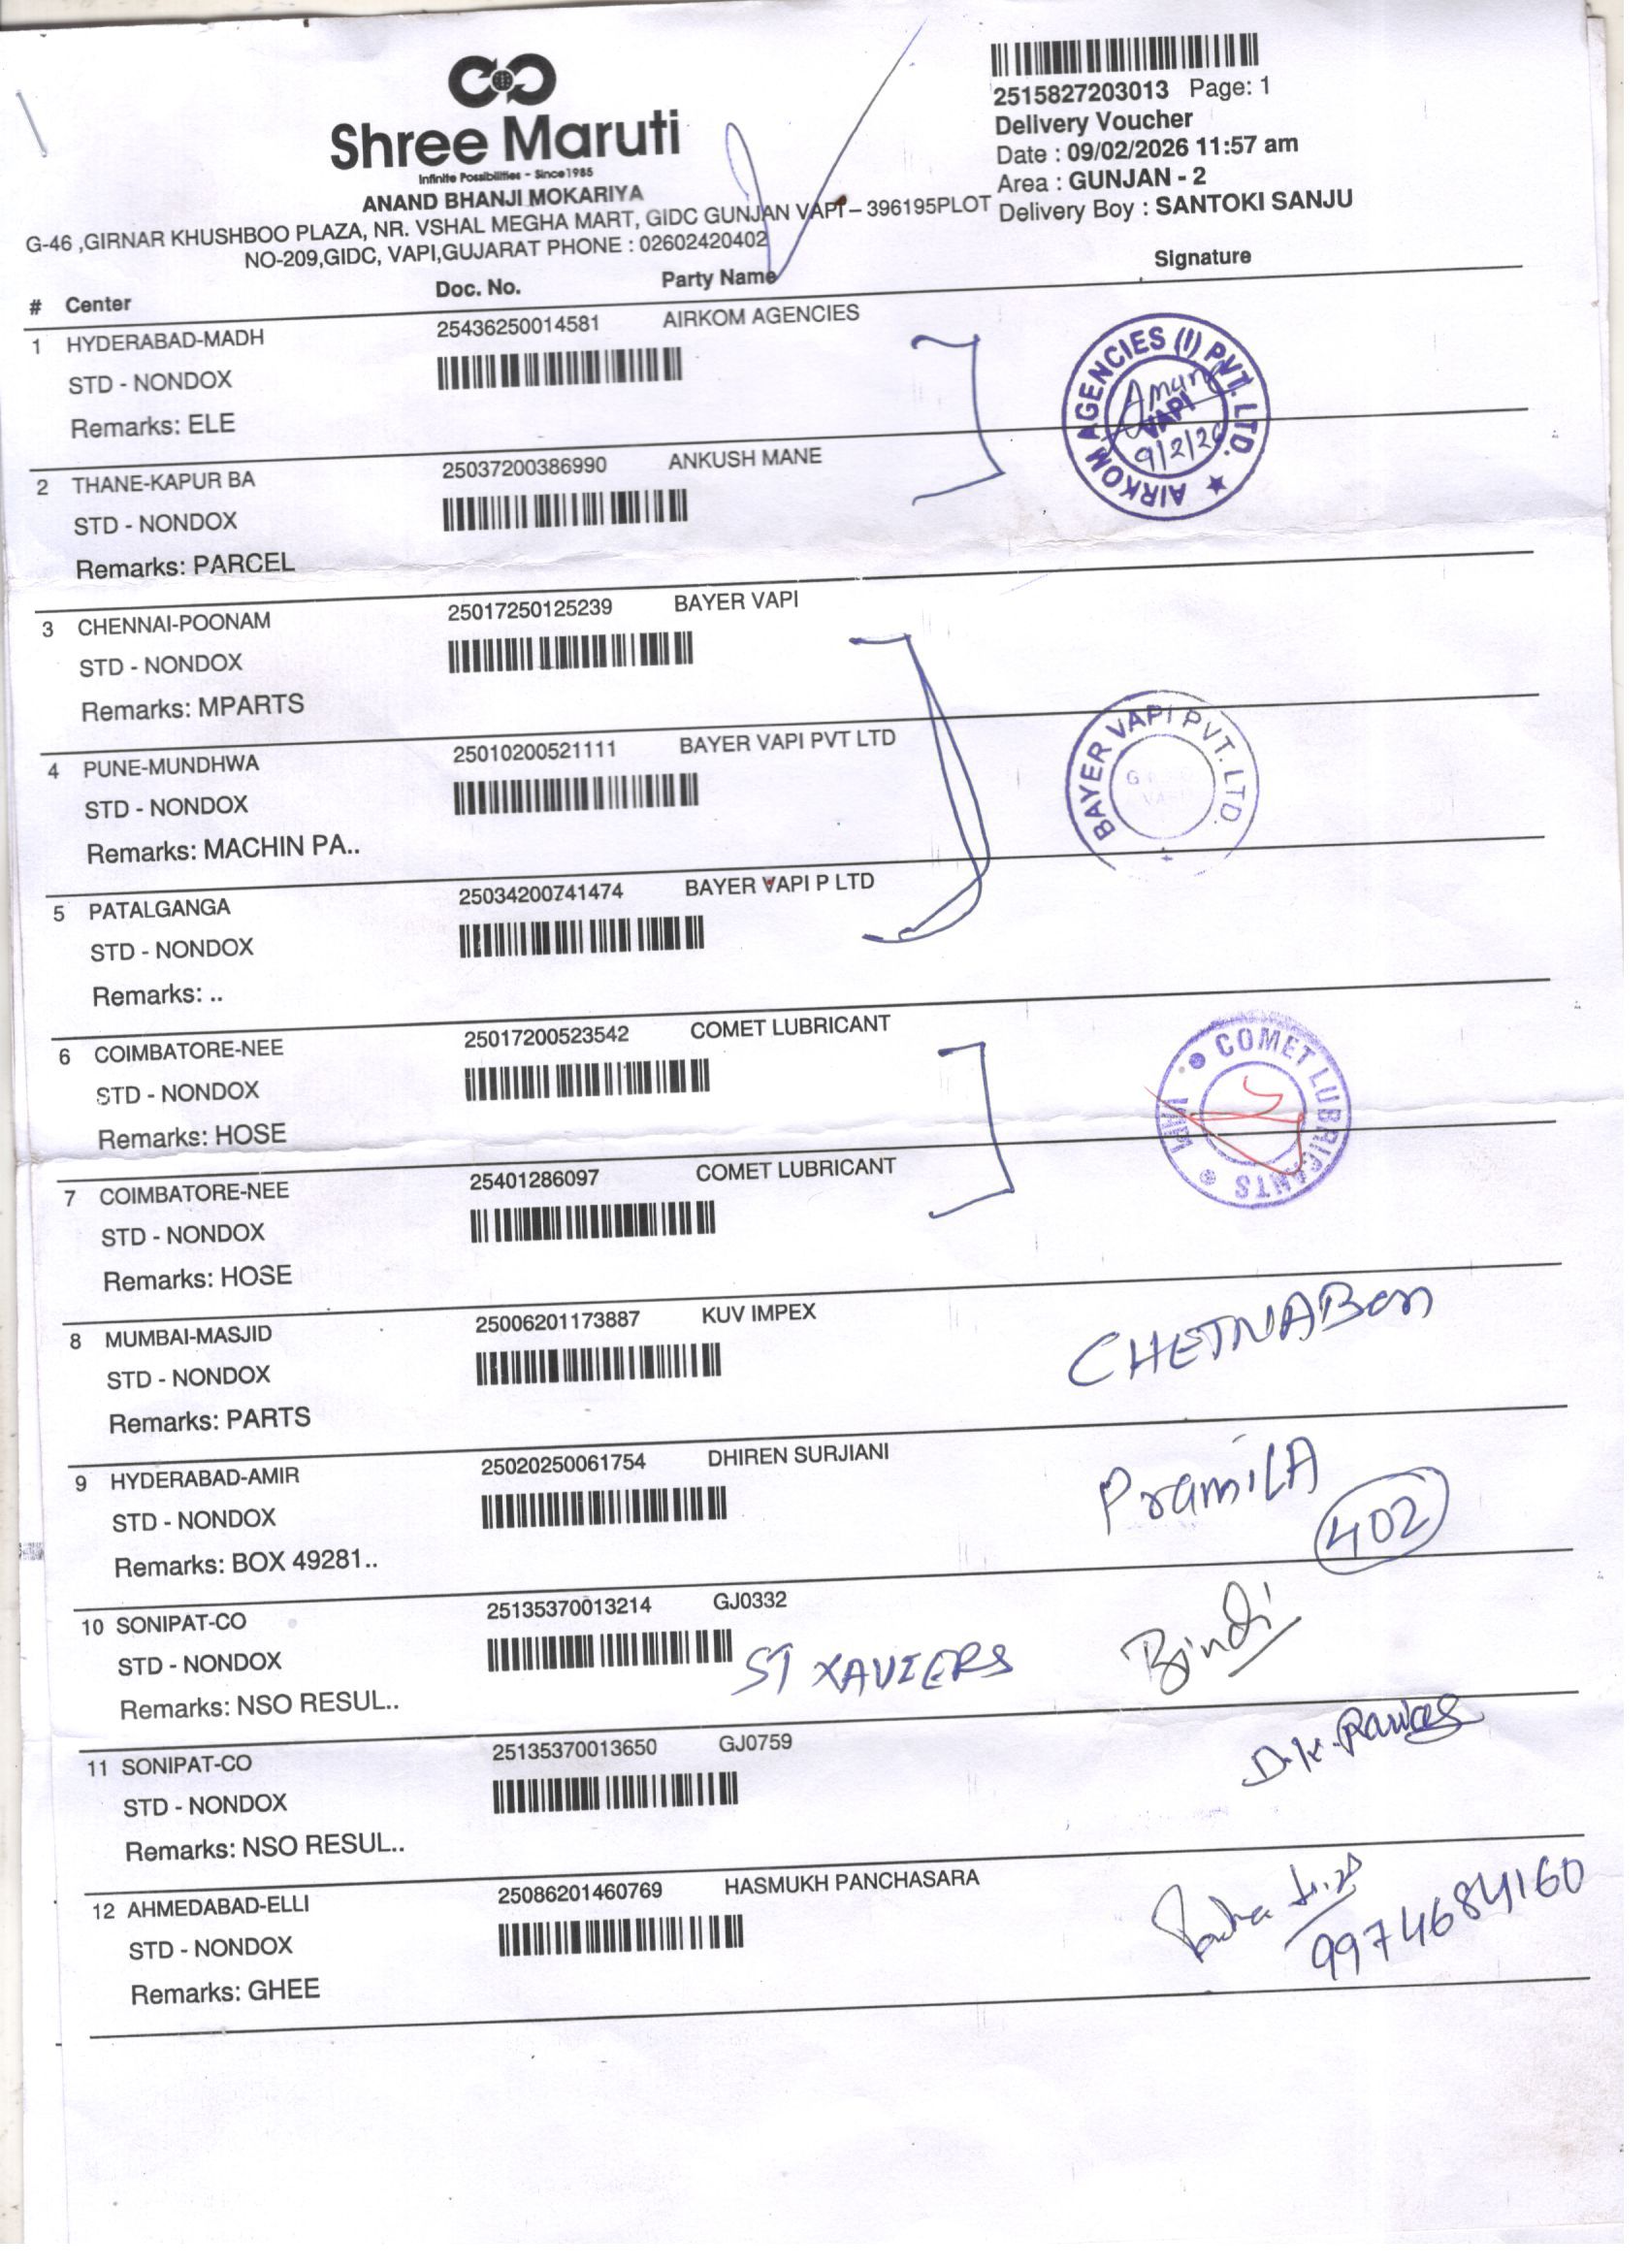 2515827203013 Page: 1
Shree Maruti
Infinite Possibilities - Since 1985
Delivery Voucher
Date : 09/02/2026 11:57 am
Area : GUNJAN - 2
Delivery Boy : SANTOKI SANJU
ANAND BHANJI MOKARIYA
G-46 ,GIRNAR KHUSHBOO PLAZA, NR. VSHAL MEGHA MART, GIDC GUNJAN VAPI – 396195PLOT
NO-209,GIDC, VAPI,GUJARAT PHONE : 02602420402
# Center Doc. No. Party Name Signature
1 HYDERABAD-MADH 25436250014581 AIRKOM AGENCIES
STD - NONDOX
Remarks: ELE
AIRKOM AGENCIES (I) PVT. LTD. ★
VAPI
9/2/26
2 THANE-KAPUR BA 25037200386990 ANKUSH MANE
STD - NONDOX
Remarks: PARCEL
3 CHENNAI-POONAM 25017250125239 BAYER VAPI
STD - NONDOX
Remarks: MPARTS
4 PUNE-MUNDHWA 25010200521111 BAYER VAPI PVT LTD
STD - NONDOX
Remarks: MACHIN PA..
BAYER VAPI PVT. LTD.
5 PATALGANGA 25034200741474 BAYER VAPI P LTD
STD - NONDOX
Remarks: ..
6 COIMBATORE-NEE 25017200523542 COMET LUBRICANT
STD - NONDOX
Remarks: HOSE
COMET LUBRICANTS
7 COIMBATORE-NEE 25401286097 COMET LUBRICANT
STD - NONDOX
Remarks: HOSE
8 MUMBAI-MASJID 25006201173887 KUV IMPEX CHETNABen
STD - NONDOX
Remarks: PARTS
9 HYDERABAD-AMIR 25020250061754 DHIREN SURJIANI PramilA
STD - NONDOX 402
Remarks: BOX 49281..
10 SONIPAT-CO 25135370013214 GJ0332
STD - NONDOX ST XAVIERS Bindi
Remarks: NSO RESUL..
11 SONIPAT-CO 25135370013650 GJ0759
STD - NONDOX
Remarks: NSO RESUL..
12 AHMEDABAD-ELLI 25086201460769 HASMUKH PANCHASARA
STD - NONDOX 9974684160
Remarks: GHEE